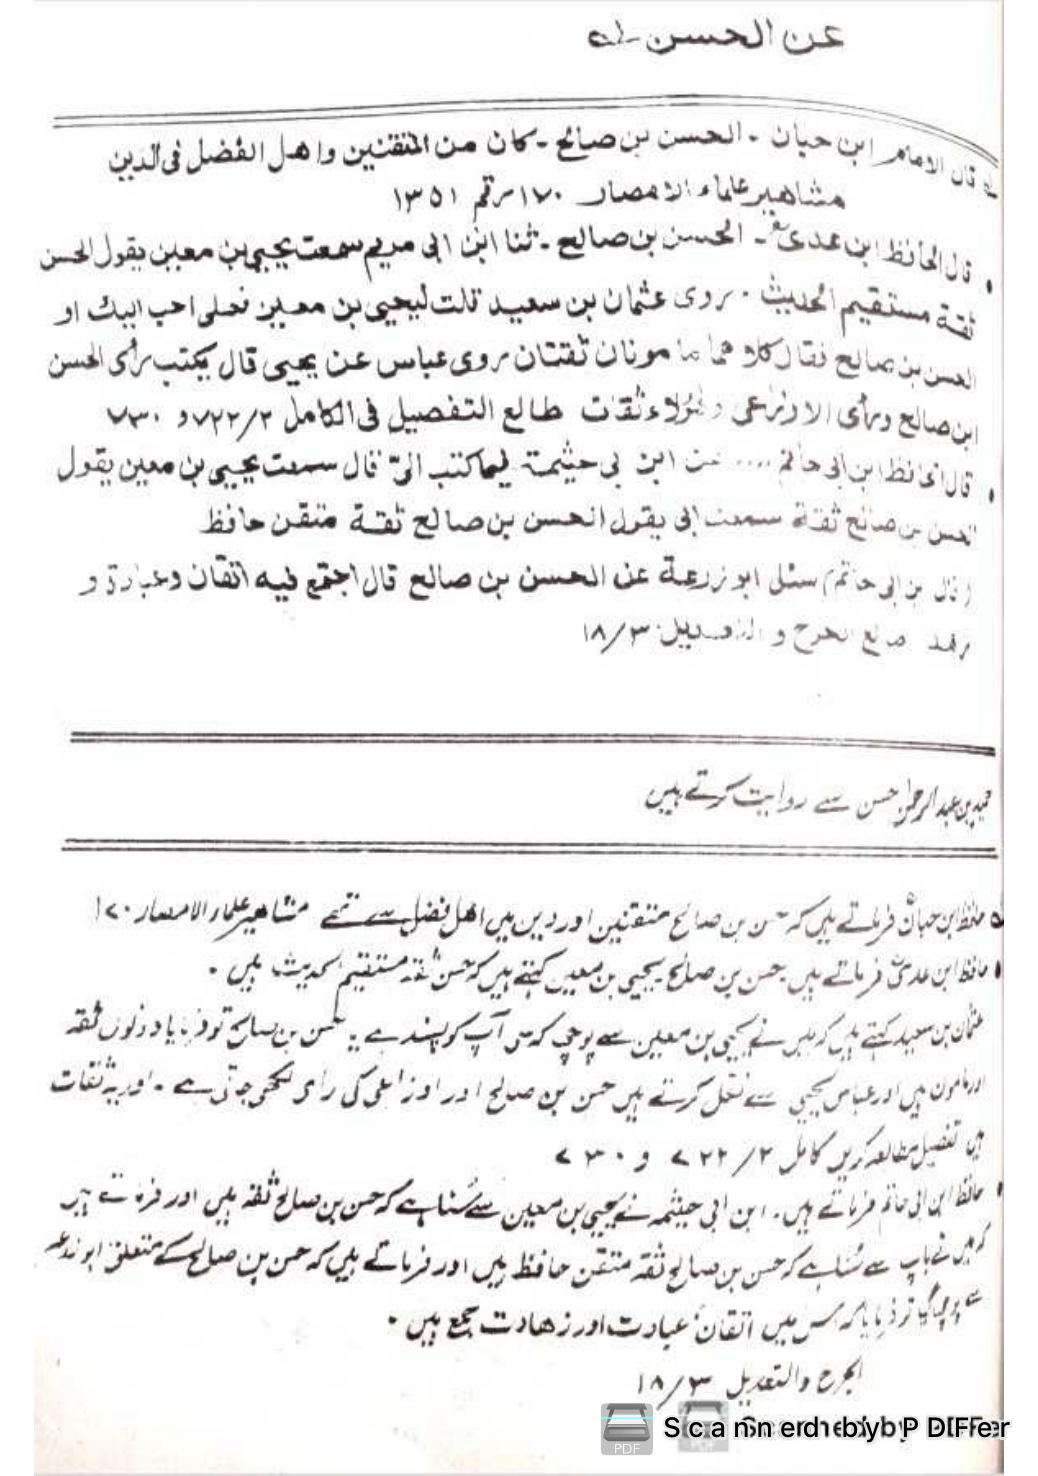 عن الحسن ؎
قال الامام ابن حبان ـ الحسن بن صالح ـ كان من المتقنين واهل الفضل فى الدين
مشاهير علماء الامصار ١٧٠ رقم ١٣٥١
• قال الحافظ ابن عدى ـ الحسن بن صالح ـ ثنا ابن ابى مريم سمعت يحيى بن معين يقول الحسن
ثقة مستقيم الحديث ـ روى عثمان بن سعيد قلت ليحيى بن معين فعلى احب اليك او
الحسن بن صالح فقال كلاهما مامونان ثقتان روى عباس عن يحيى قال يكتب رأى الحسن
ابن صالح ورأى الاوزاعى وهؤلاء ثقات طالع التفصيل فى الكامل ٧٢٢/٢ و ٧٣٠
• قال الحافظ ابن ابى حاتم .... عن ابن ابى خيثمة فيما كتب الىّ قال سمعت يحيى بن معين يقول
الحسن بن صالح ثقة سمعت ابى يقول الحسن بن صالح ثقة متقن حافظ
(قال بن ابى حاتم) سئل ابو زرعة عن الحسن بن صالح قال اجتمع فيه اتقان وعبادة و
زهد طالع الجرح و التعديل ١٨/٣
حمید بن عبد الرحمن حسن سے روایت کرتے ہیں
حافظ ابن حبان فرماتے ہیں کہ حسن بن صالح متقنین اور دین میں اهل فضل سے تھے مشاهير علماء الامصار ١٧٠
• حافظ ابن عدی فرماتے ہیں حسن بن صالح یحیی بن معین کہتے ہیں کہ حسن ثقہ مستقیم الحدیث ہیں ۔
عثمان بن سعید کہتے ہیں کہ میں نے یحیی بن معین سے پوچھا کہ علی آپ کو پسند ہے یا حسن بن صالح تو فرمایا دونوں ثقہ
اور مامون ہیں اور عباس یحیی سے نقل کرتے ہیں حسن بن صالح اور اوزاعی کی رائ لکھی جاتی ہے ۔ اور یہ ثقات
ہیں تفصیل مطالعہ کریں کامل ٢/ ٧٢٢ و ٧٣٠
• حافظ ابن ابی حاتم فرماتے ہیں ۔ ابن ابی خیثمہ نے یحیی بن معین سے سُنا ہے کہ حسن بن صالح ثقہ ہیں اور فرماتے ہیں
کہ میں نے باپ سے سُنا ہے کہ حسن بن صالح ثقہ متقن حافظ ہیں اور فرماتے ہیں کہ حسن بن صالح کے متعلق ابو زرعہ
سے پوچھا گیا تو فرمایا کہ اس میں اتقان، عبادت اور زهادت جمع ہیں ۔
الجرح والتعدیل ١٨/٣